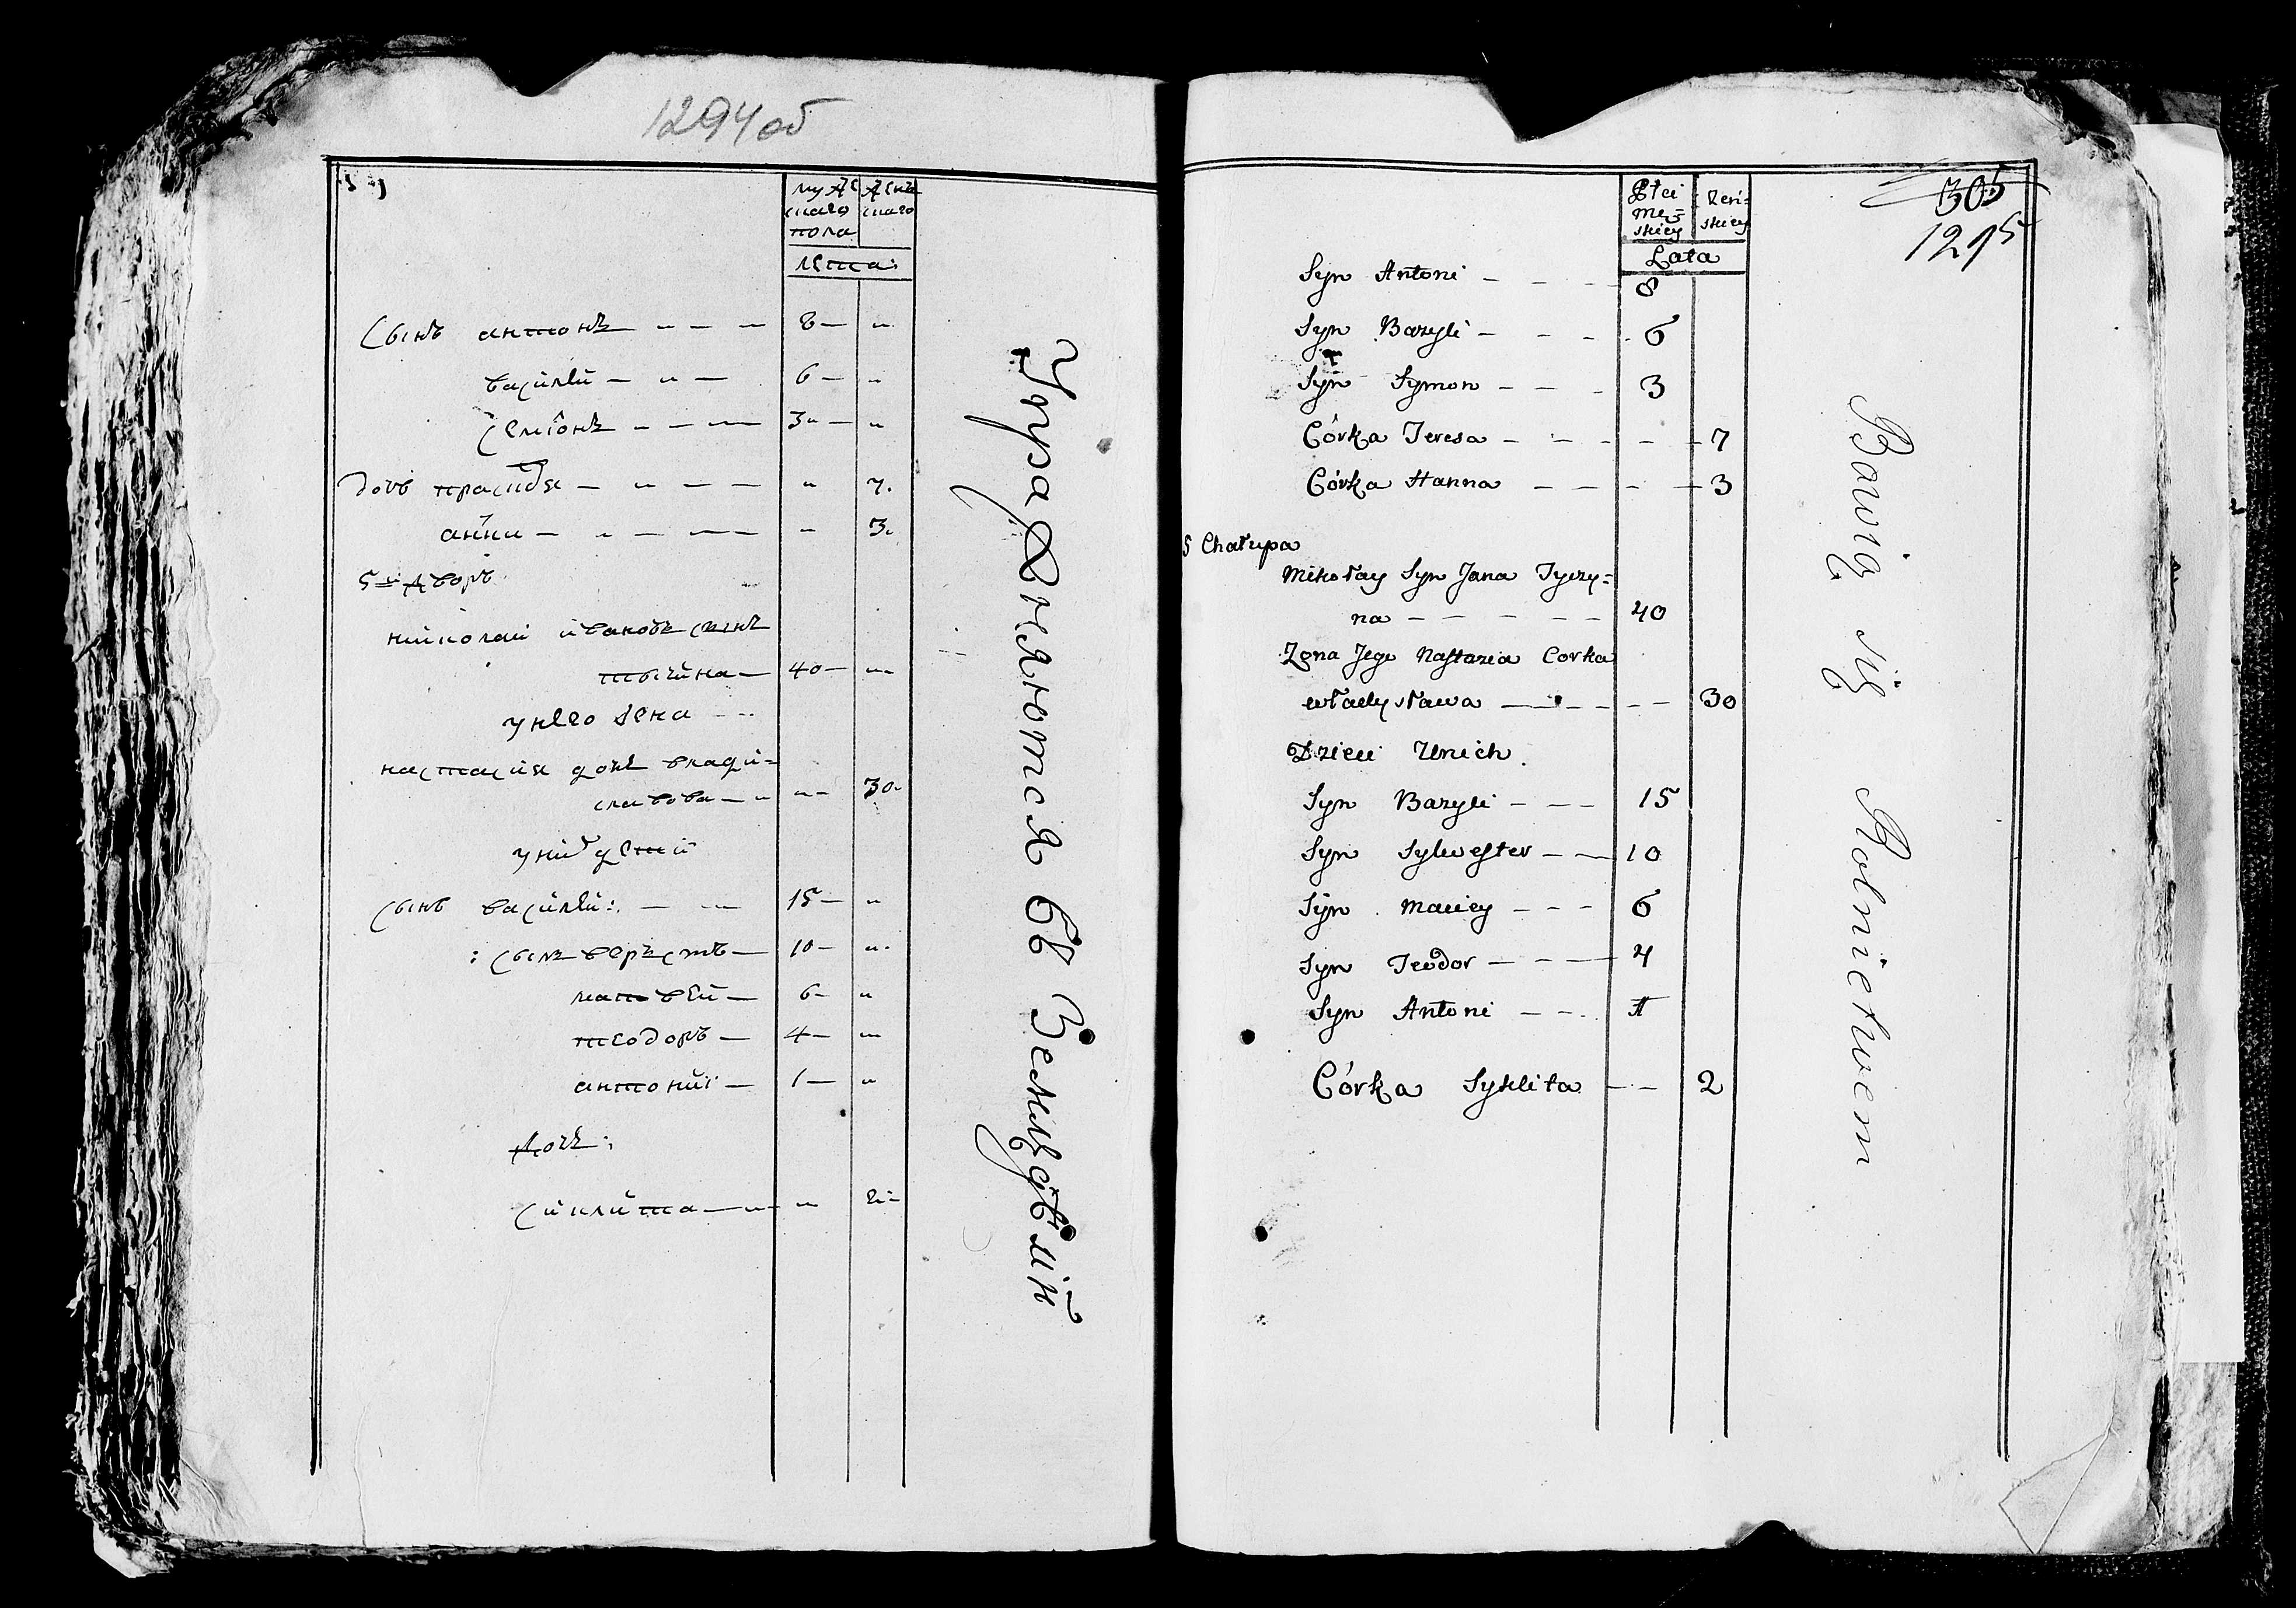 1294об
муже
скаго
пола
женъ
скаго
лета:
Сынъ антонъ — 8 —
василѣй — 6 —
Семіонъ — 3 —
дочь праскѣдя — 7.
анна — 3.
5й дворъ
николай ивановъ сынъ
тычина — 40 —
у него жена
настасия дочь влади=
славова — 30
у них дети
Сынъ василѣй: 15 —
10 —
матвѣй — 6 —
теодоръ — 4 —
антоній — 1 —
дочь:
Сиклита — 2 —
Упражняются въ Земледѣліи
305
1295
Płci
mę=
skiey
Żeń=
skiey
Lata
Syn Antoni — 8
Syn Bazyli — 6
Syn Symon — 3
Córka Teresa — 7
Córka Hanna — 3
5 Chałupa
Mikołay Syn Jana Tyczy=
na — 40
Zona Jego Nastazia Corka
władysława — 30
Dzieci Unich.
Syn Bazyli — 15
Syn Sylwester — 10
Syn Maciey — 6
Syn Teodor — 4
Syn Antoni — 1
Córka Syklita — 2
Bawią się Rolnictwem